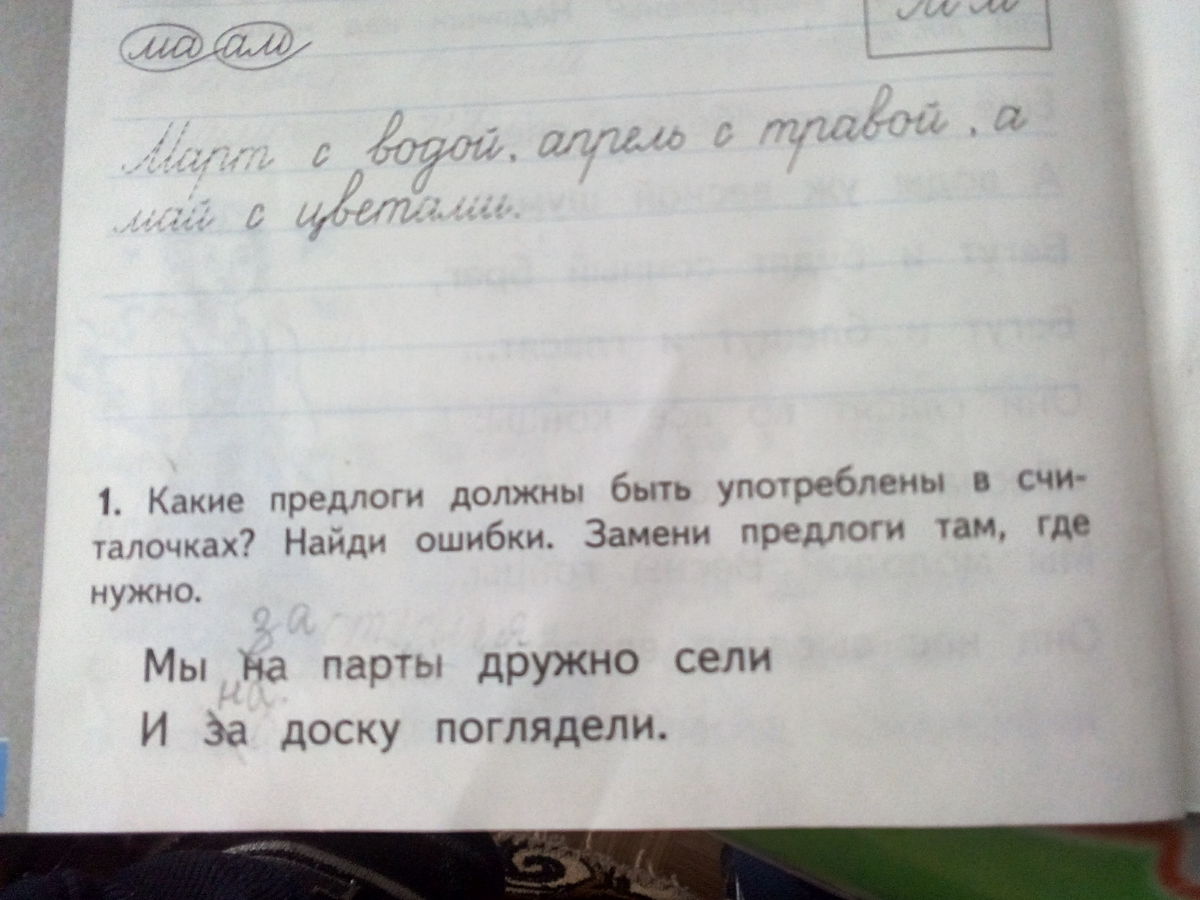 ма ам
Март с водой, апрель с травой, а
май с цветами.
1. Какие предлоги должны быть употреблены в счи-
талочках? Найди ошибки. Замени предлоги там, где
нужно.
за
Мы на парты дружно сели
на
И за доску поглядели.